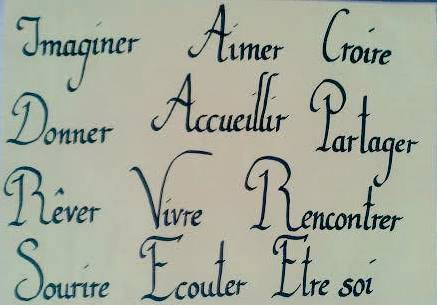 Imaginer Aimer Croire
Donner Accueillir Partager
Rêver Vivre Rencontrer
Sourire Ecouter Etre soi